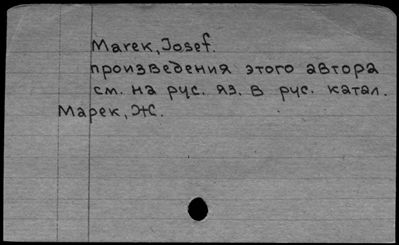 Marek, Josef.
произведения этого автора
см. на рус. яз. в рус. катал.
Марек, Ж.